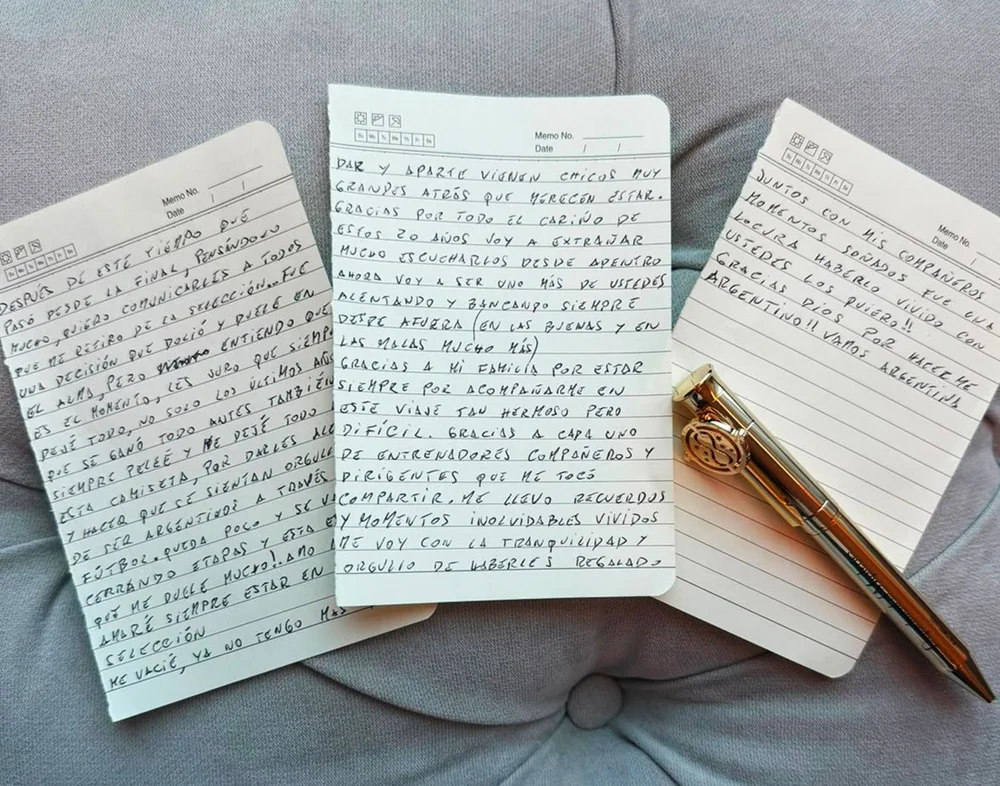 Memo No.
Date / /
DESPUÉS DE ESTE TIEMPO QUE
PASÓ DESDE LA FINAL, PENSÁNDOLO
MUCHO, QUIERO COMUNICARLES A TODOS
QUE ME RETIRO DE LA SELECCIÓN... FUE
UNA DECISIÓN QUE DOLIÓ Y DUELE EN
EL ALMA, PERO ENTIENDO QUE
ES EL MOMENTO, LES JURO QUE SIEMP
DEJÉ TODO, NO SOLO LOS ÚLTIMOS AÑOS
QUE SE GANÓ TODO ANTES TAMBIÉN
SIEMPRE PELEÉ Y ME DEJÉ TODO
ESTA CAMISETA, POR DARLES ALE
Y HACER QUE SE SIENTAN ORGULL
DE SER ARGENTINOS A TRAVÉS
FÚTBOL. QUEDA POCO Y SE VA
CERRANDO ETAPAS Y ESTA E
QUE ME DUELE MUCHO! AMO
AMARÉ SIEMPRE ESTAR EN
SELECCIÓN
ME VACIÉ, YA NO TENGO MAS
Memo No.
Date / /
DAR Y APARTE VIENEN CHICOS MUY
GRANDES ATRÁS QUE MERECEN ESTAR.
GRACIAS POR TODO EL CARIÑO DE
ESTOS 20 AÑOS VOY A EXTRAÑAR
MUCHO ESCUCHARLOS DESDE ADENTRO
AHORA VOY A SER UNO MÁS DE USTEDES
ALENTANDO Y BANCANDO SIEMPRE
DESDE AFUERA (EN LAS BUENAS Y EN
LAS MALAS MUCHO MÁS)
GRACIAS A MI FAMILIA POR ESTAR
SIEMPRE POR ACOMPAÑARME EN
ESTE VIAJE TAN HERMOSO PERO
DIFÍCIL. GRACIAS A CADA UNO
DE ENTRENADORES COMPAÑEROS Y
DIRIGENTES QUE ME TOCÓ
COMPARTIR. ME LLEVO RECUERDOS
Y MOMENTOS INOLVIDABLES VIVIDOS
ME VOY CON LA TRANQUILIDAD Y
ORGULLO DE HABERLES REGALADO
Memo No.
Date /
JUNTOS CON MIS COMPAÑEROS
MOMENTOS SOÑADOS FUE UNA
LOCURA HABERLO VIVIDO CON
USTEDES LOS QUIERO!!
GRACIAS DIOS POR HACERME
ARGENTINO!! VAMOS ARGENTINA